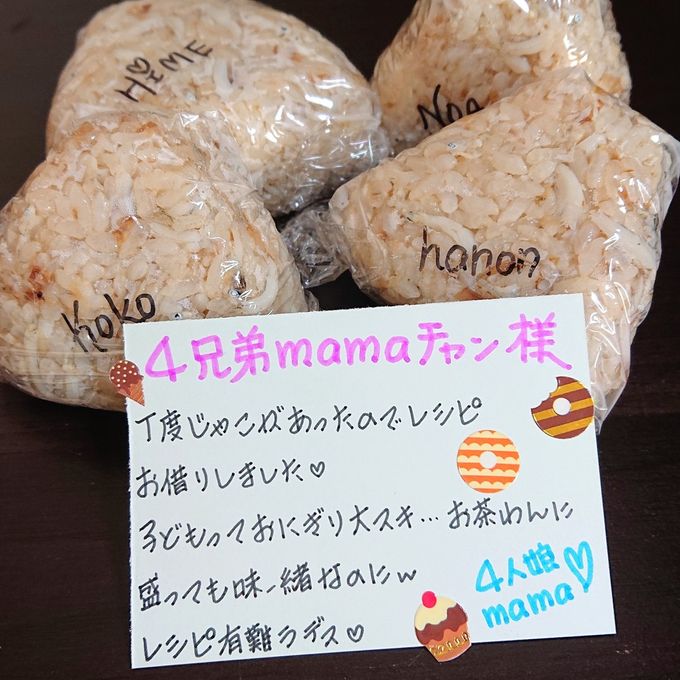 HIME
Noa
Koko
hanon
4兄弟mamaチャン様
丁度じゃこがあったのでレシピ
お借りしました♡
子どもっておにぎり大スキ…お茶わんに
盛っても味一緒なのにw
レシピ有難うデス♡
4人娘
mama♡